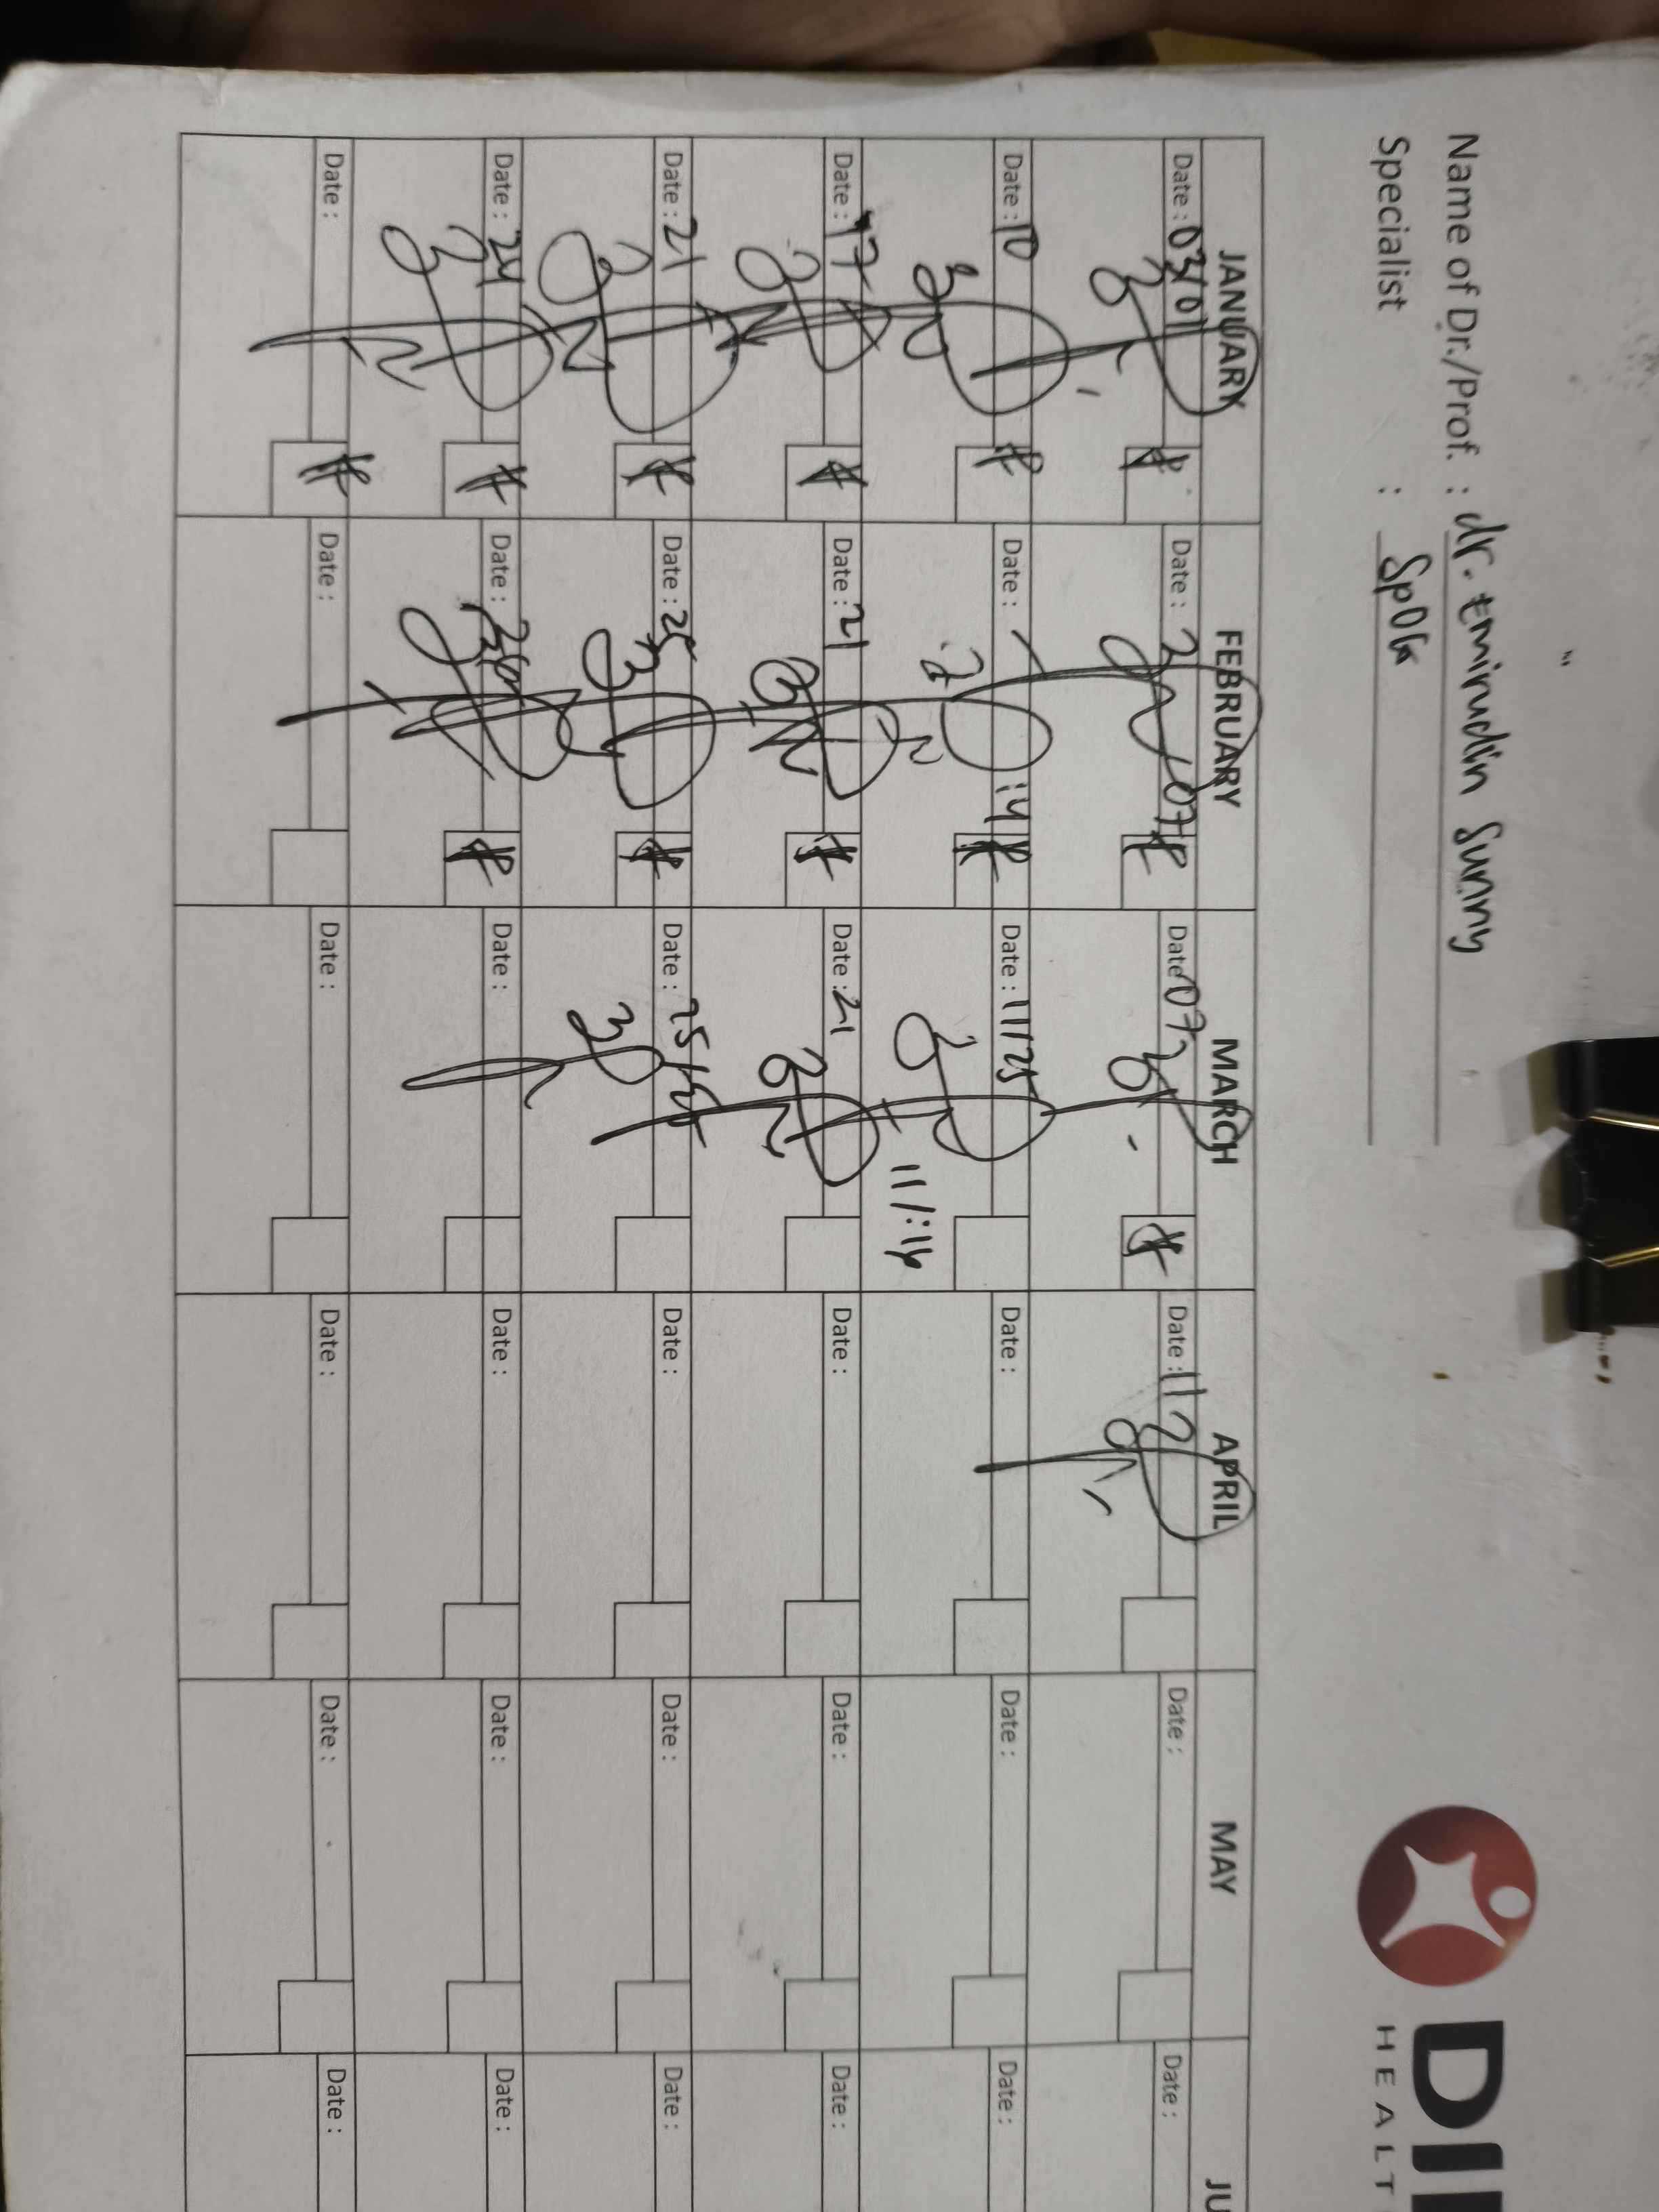 Name of Dr./Prof. : dr. Emirudin Sunny
Specialist : SpOG
DI
HEALT
JANUARY FEBRUARY MARCH APRIL MAY JU
Date : 03/01 Date : 2 Date 07 Date : 11 Date : Date :
Date : 10 Date : Date : 11/25 Date : Date : Date :
Date : 17 Date : 21 Date : 21 Date : Date : Date :
Date : 21 Date : 25 Date : 25 Date : Date : Date :
Date : 24 Date : 28 Date : Date : Date : Date :
Date : Date : Date : Date : Date : Date :